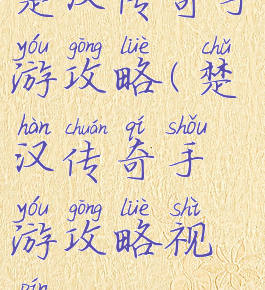 楚汉传奇手
yóu gōng lüè chǔ
游攻略(楚
hàn chuán qí shǒu
汉传奇手
yóu gōng lüè shì
游攻略视
pín